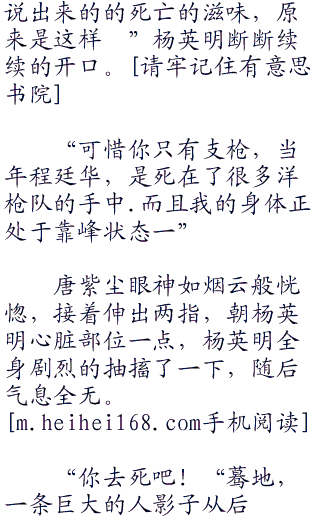 说出来的的死亡的滋味，原
来是这样　”杨英明断断续
续的开口。[请牢记住有意思
书院]
“可惜你只有支枪，当
年程廷华，是死在了很多洋
枪队的手中.而且我的身体正
处于靠峰状态一”
唐紫尘眼神如烟云般恍
惚，接着伸出两指，朝杨英
明心脏部位一点，杨英明全
身剧烈的抽搐了一下，随后
气息全无。
[m.heihei168.com手机阅读]
“你去死吧！“蓦地，
一条巨大的人影子从后